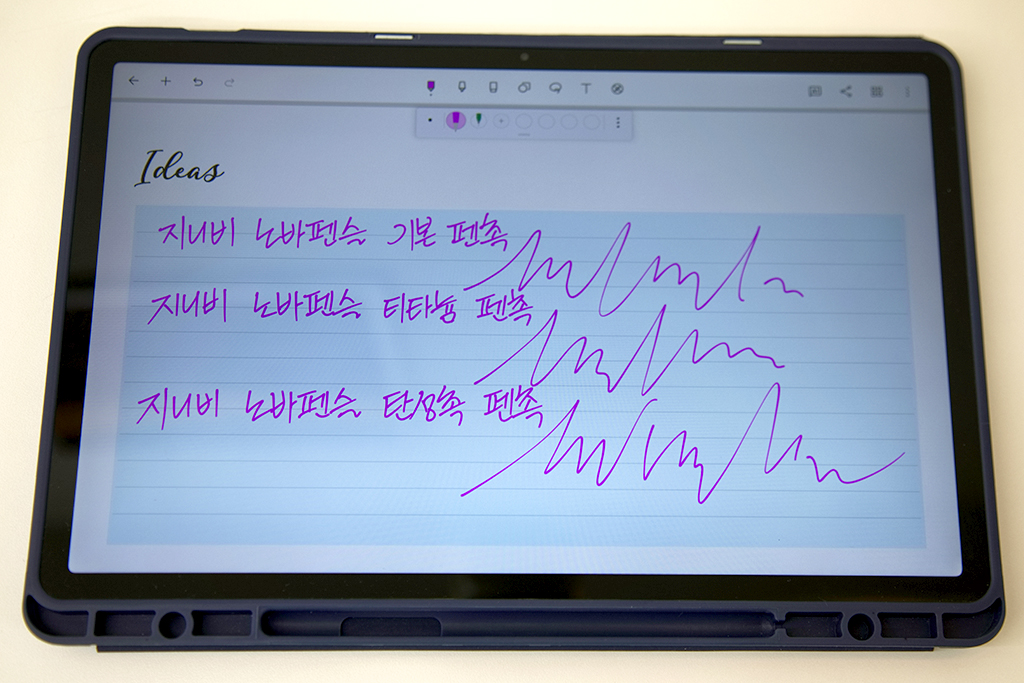 Ideas
지니비 노바펜슬 기본 펜촉
지니비 노바펜슬 티타늄 펜촉
지니비 노바펜슬 탄성촉 펜촉